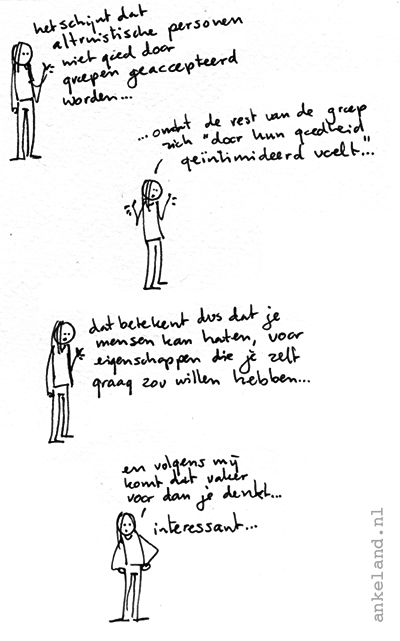 het schijnt dat
altruïstische personen
niet goed door
groepen geaccepteerd
worden...
...omdat de rest van de groep
zich "door hun goedheid
geïntimideerd voelt"...
dat betekent dus dat je
mensen kan haten, voor
eigenschappen die je zelf
graag zou willen hebben...
en volgens mij
komt dat vaker
voor dan je denkt...
interessant...
ankeland.nl